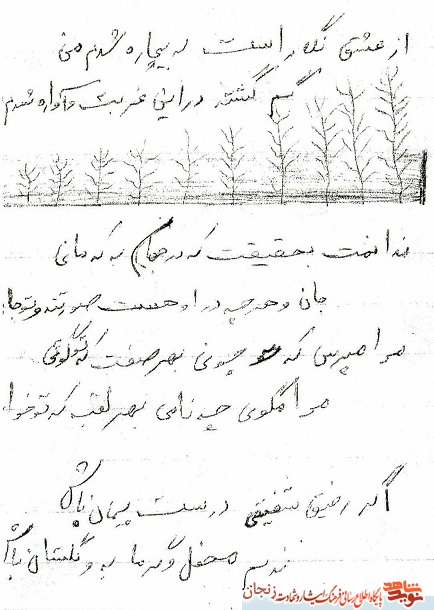 از عشق نگار است که بیچاره شدم من
گم گشته در این غربت و آواره شدم
ندانمت بحقیقت که در جهان به که مانی
جهان و هر چه در او هست صورتند و تو جا
مرا مپرس که چونی بهر صفت که تو گوئی
مرا مگوی چه نامی بهر لقب که تو خوا
اگر رفیق شفیقی درست پیمان باش
ندیم محفل و گرمابه و گلستان باش
نوید شاهد
پایگاه اطلاع رسانی فرهنگ ایثار و شهادت زنجان